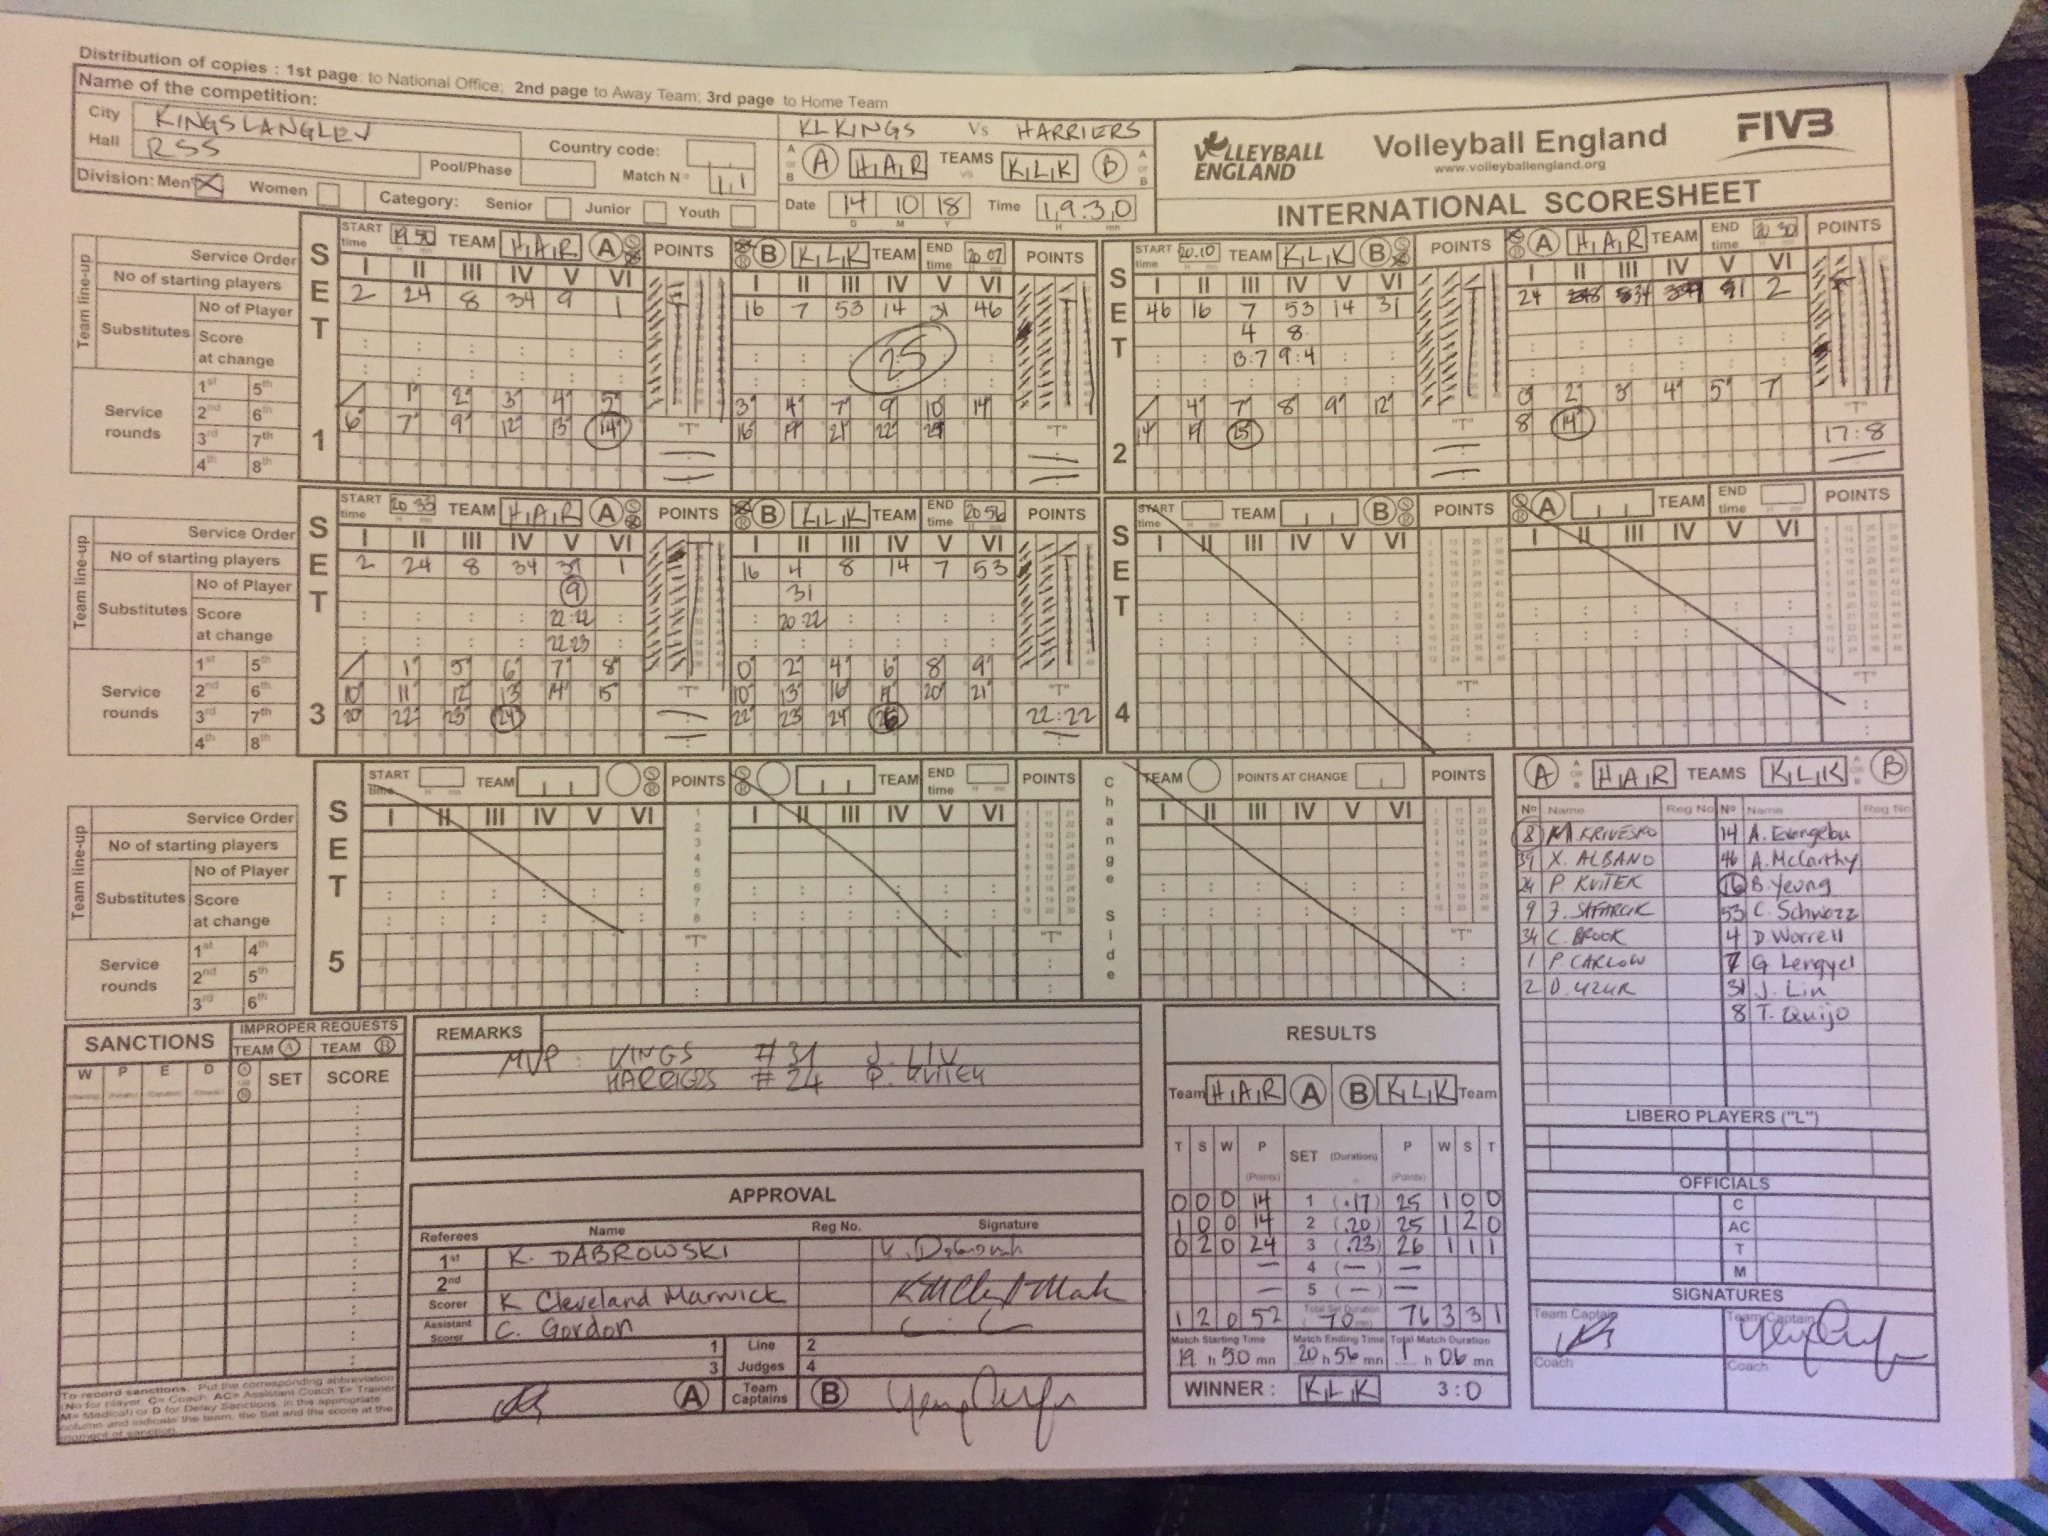 Distribution of copies : 1st page: to National Office; 2nd page to Away Team; 3rd page to Home Team
Name of the competition:
City KINGS LANGLEY
Hall RSS
Country code:
Pool/Phase Match Nº 11
Division: Men Women Category: Senior Junior Youth
KL KINGS Vs HARRIERS
A or B A HAR TEAMS vs KLK B A or B
Date 14 10 18 Time 19.30
D M Y H mn
VOLLEYBALL ENGLAND
Volleyball England
www.volleyballengland.org
FIVB
INTERNATIONAL SCORESHEET
Team line-up
Service Order
No of starting players
Substitutes
No of Player
Score at change
Service rounds
1st 5th
2nd 6th
3rd 7th
4th 8th
SET 1
START time 19.50 TEAM HAR A POINTS
I II III IV V VI
2 24 8 34 9 1
1 2 3 4 5
6 7 9 12 13 14
"T"
B KLK TEAM END time 20.07 POINTS
I II III IV V VI
16 7 53 14 31 46
25
3 4 7 9 10 14
16 19 21 22 25
"T"
SET 2
START time 20.10 TEAM KLK B POINTS
I II III IV V VI
46 16 7 53 14 31
4 8
13:7 9:4
4 7 8 9 12
14 19 25
"T"
A HAR TEAM END time 20 30 POINTS
I II III IV V VI
24 8 34 9 1 2
0 2 3 4 5 7
8 14
"T"
17:8
Team line-up
Service Order
No of starting players
Substitutes
No of Player
Score at change
Service rounds
1st 5th
2nd 6th
3rd 7th
4th 8th
SET 3
START time 20 33 TEAM HAR A POINTS
I II III IV V VI
2 24 8 34 39 1
9
22:22
22:23
1 5 6 7 8
10 11 12 13 14 15
20 22 23 24
"T"
B KLK TEAM END time 20 56 POINTS
I II III IV V VI
16 4 8 14 7 53
31
20:22
0 2 4 6 8 9
10 13 16 19 20 21
22 23 24 26
"T"
22:22
SET 4
START time TEAM B POINTS
I II III IV V VI
"T"
A TEAM END time POINTS
I II III IV V VI
"T"
Team line-up
Service Order
No of starting players
Substitutes
No of Player
Score at change
Service rounds
1st 4th
2nd 5th
3rd 6th
SET 5
START time TEAM POINTS
I II III IV V VI
"T"
TEAM END time POINTS
I II III IV V VI
"T"
Change Side
TEAM POINTS AT CHANGE POINTS
I II III IV V VI
"T"
A HAR TEAMS KLK B
Nº Name Reg No Nº Name Reg No
8 M KRIVESKO 14 A. Evangelou
39 X. ALBANO 46 A. McCarthy
24 P KVITEK 16 B. Yeung
9 J. SAFARCIK 53 C. Schwarz
34 C. BROOK 4 D. Worrell
1 P CARLOW 7 G Lengyel
2 D. UZUR 31 J. Lin
8 T. Quijo
LIBERO PLAYERS ("L")
OFFICIALS
C
AC
T
M
SIGNATURES
Team Captain Team Captain
Coach Coach
SANCTIONS
IMPROPER REQUESTS
TEAM A TEAM B
W P E D A or B SET SCORE
To record sanctions: Put the corresponding abbreviation
(No for player, C= Coach, AC= Assistant Coach T= Trainer
M= Medical) or D for Delay Sanctions, in the appropriate
column and indicate the team, the Set and the score at the
moment of sanction.
REMARKS
MVP : KINGS #31 J. LIN
HARRIERS #24 P. KVITEK
APPROVAL
Referees Name Reg No. Signature
1st K. DABROWSKI
2nd
Scorer K Cleveland Marwick
Assistant Scorer C. Gordon
1 Line 2
3 Judges 4
A Team Captains B
RESULTS
Team HAR A B KLK Team
T S W P (Points) SET (Duration) P (Points) W S T
0 0 0 14 1 (.17) 25 1 0 0
1 0 0 14 2 (.20) 25 1 2 0
0 2 0 24 3 (.23) 26 1 1 1
— 4 (—) —
— 5 (—) —
1 2 0 52 Total Set Duration (70 mn) 76 3 3 1
Match Starting Time Match Ending Time Total Match Duration
19 h 50 mn 20 h 56 mn 1 h 06 mn
WINNER : KLK 3:0